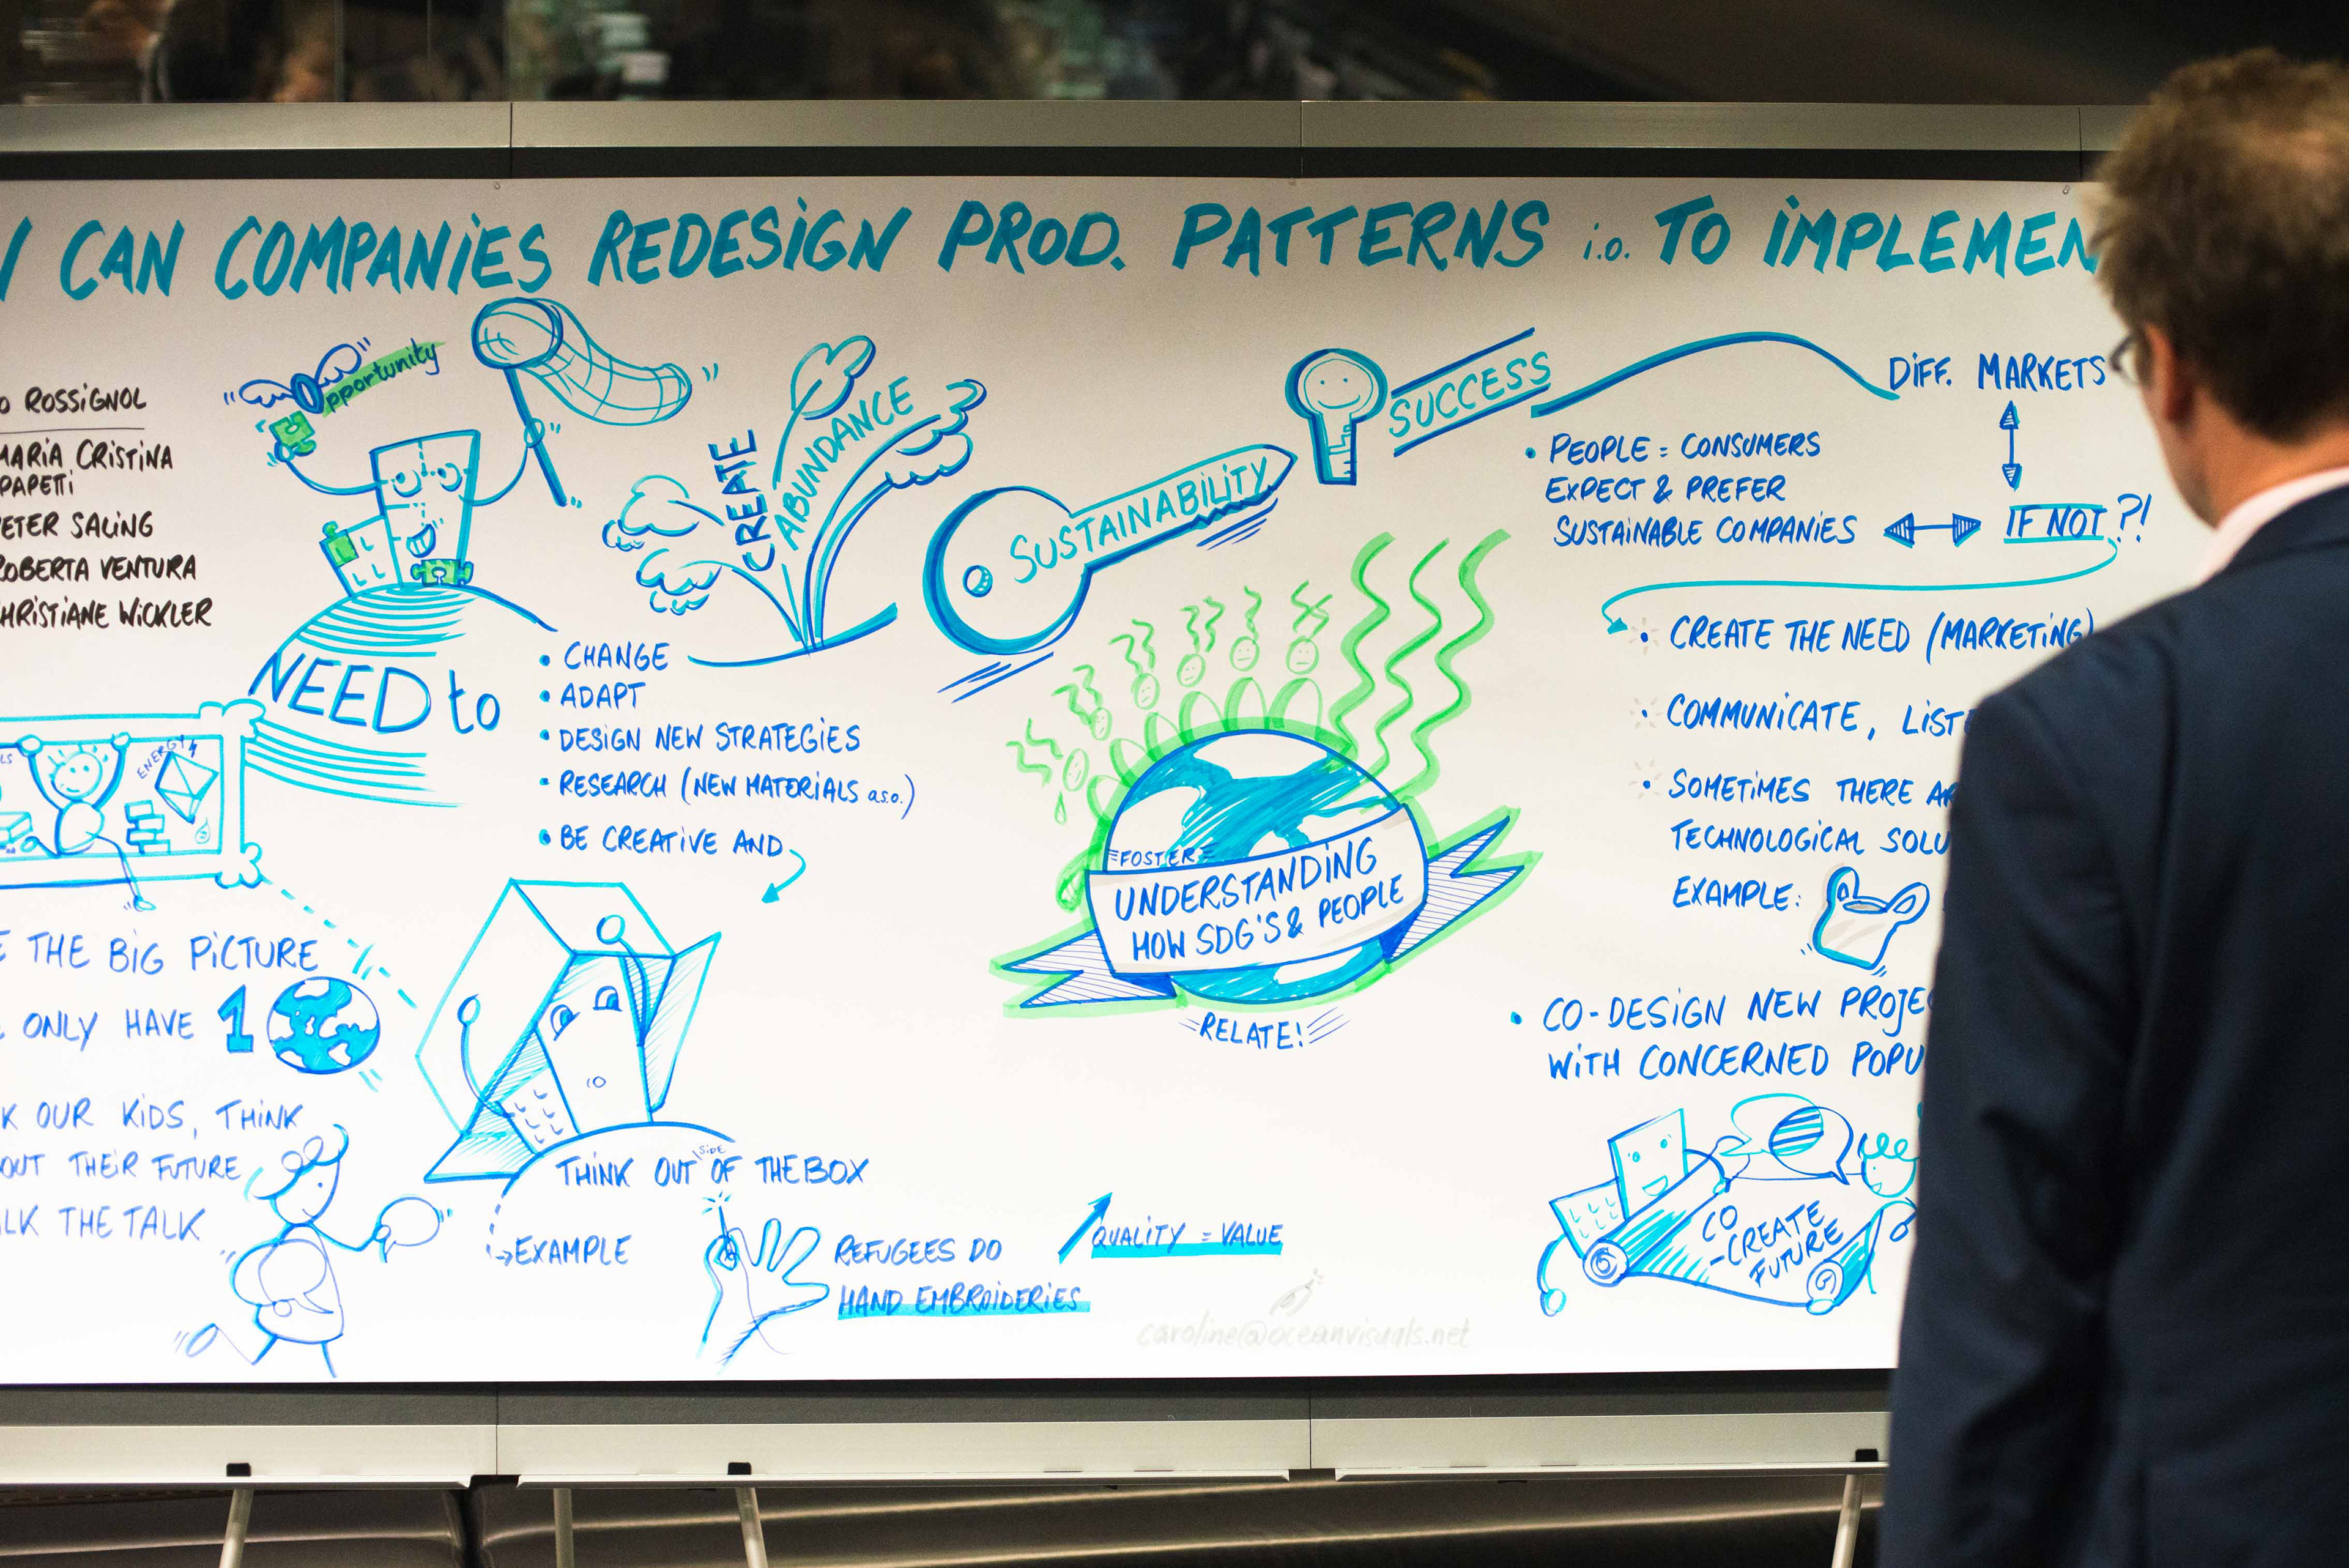 CAN COMPANIES REDESIGN PROD. PATTERNS i.o. TO IMPLEMEN
ROSSIGNOL
MARIA CRISTINA
PAPETTI
PETER SALING
ROBERTA VENTURA
CHRISTIANE WICKLER
Opportunity
CREATE
ABUNDANCE
SUSTAINABILITY
SUCCESS
DIFF. MARKETS
• PEOPLE = CONSUMERS
EXPECT & PREFER
SUSTAINABLE COMPANIES
IF NOT ?!
NEED to
• CHANGE
• ADAPT
• DESIGN NEW STRATEGIES
• RESEARCH (NEW MATERIALS a.s.o.)
• BE CREATIVE AND
ENERGY
THE BIG PICTURE
ONLY HAVE 1
OUR KIDS, THINK
THEIR FUTURE
THE TALK
THINK OUT SIDE OF THE BOX
EXAMPLE
REFUGEES DO
HAND EMBROIDERIES
QUALITY = VALUE
FOSTER
UNDERSTANDING
HOW SDG'S & PEOPLE
RELATE!
caroline@oceanvisuals.net
• CREATE THE NEED (MARKETING)
• COMMUNICATE, LIST
• SOMETIMES THERE
TECHNOLOGICAL SOLU
EXAMPLE:
• CO-DESIGN NEW PROJE
WITH CONCERNED POPU
CO
-CREATE
FUTURE